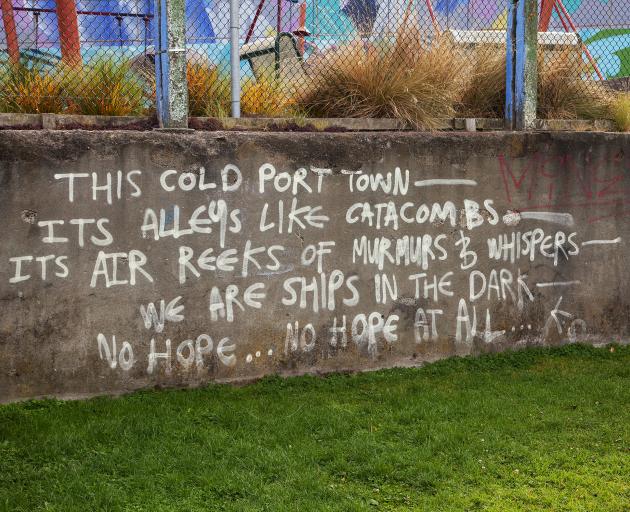 THIS COLD PORT TOWN —
ITS ALLEYS LIKE CATACOMBS. —
ITS AIR REEKS OF MURMURS & WHISPERS —
WE ARE SHIPS IN THE DARK —
NO HOPE... NO HOPE AT ALL...